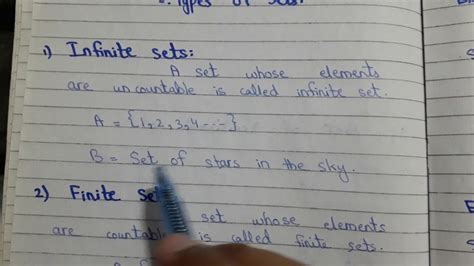 Types of Sets
1) Infinite sets:
A set whose elements
are uncountable is called infinite set.
A = {1,2,3,4---}
B = Set of stars in the sky.
2) Finite set
set whose elements
are countable is called finite sets.